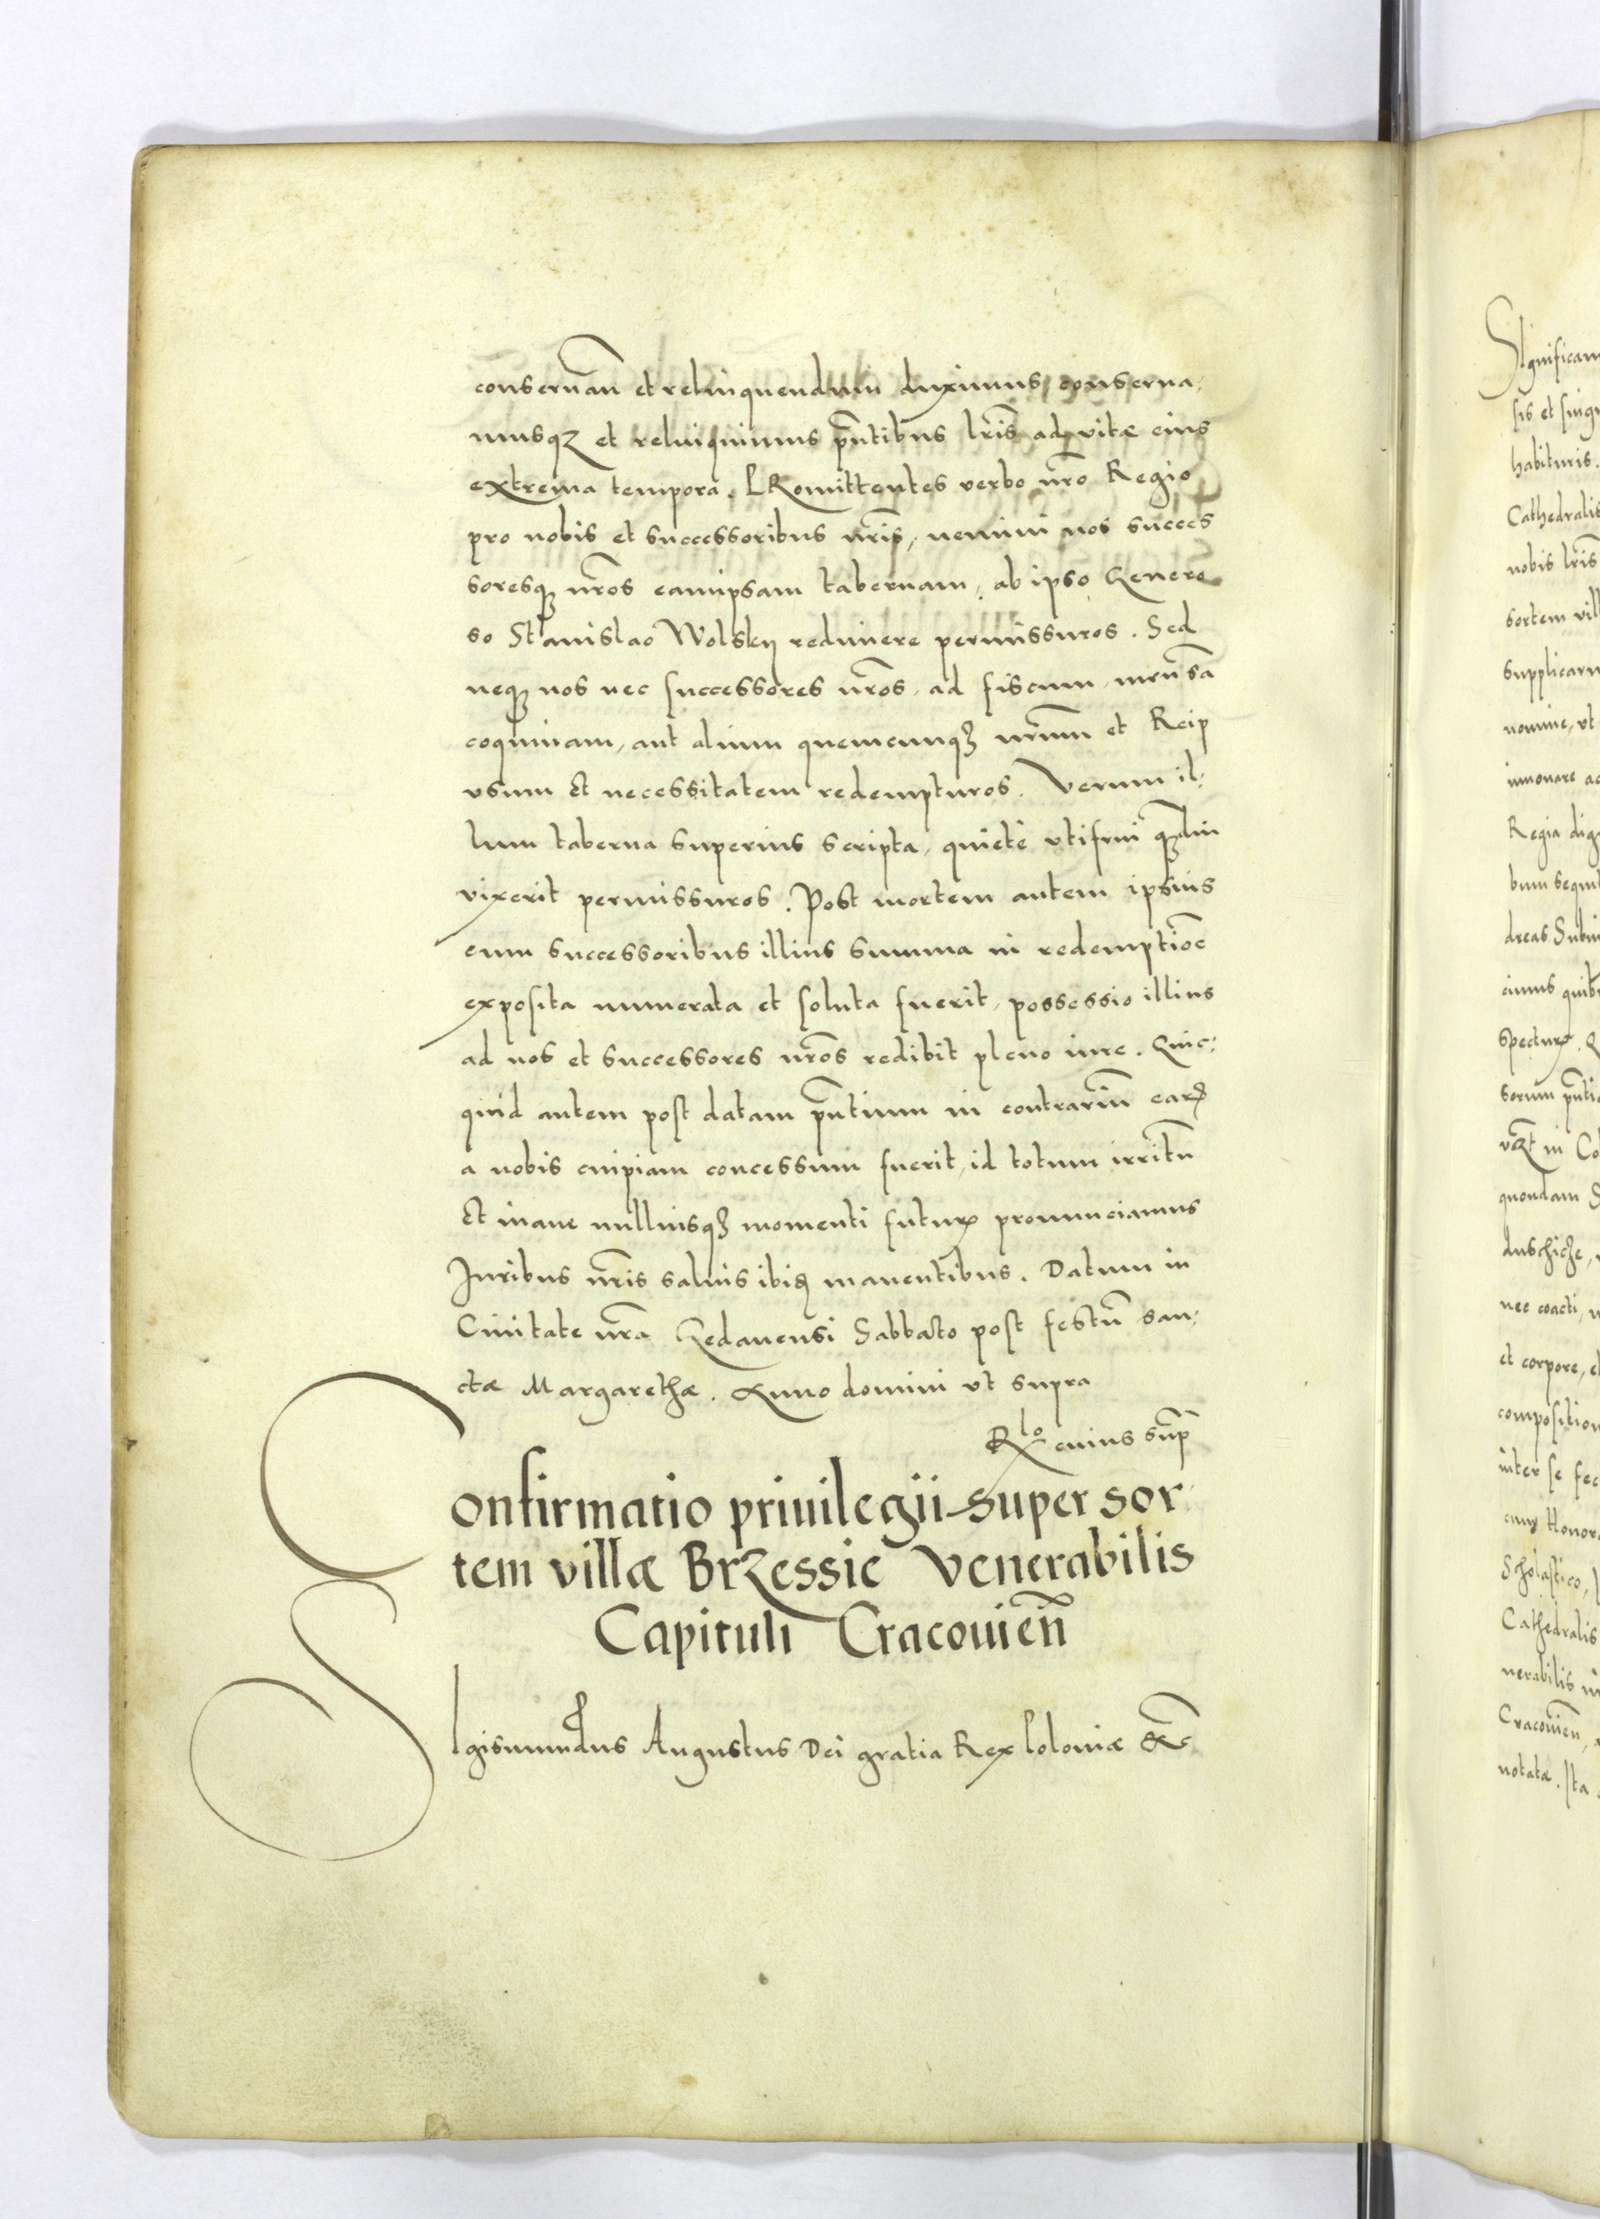 conseruan̄ et relinquendum duximus, conserua,
musq₃ et relinquimus pn̄tibus lr̄is ad vitæ eius
extrema tempora. PRomittentes verbo nr̄o Regio
pro nobis et successoribus nr̄is, nemini nos succes
soresq₃ nr̄os eamipsam tabernam, ab ipso Genero
so Stanislao Wolskij redimere permissuros. Sed
neq₃ nos nec successores nr̄os, ad fiscum, men̄sā
coquinam, aut alium quemcunq₃ nr̄um et Reip
vsum Et necessitatem redempturos. Verum il:
lum taberna superius scripta, quietè vtifrui q̄₃diu
vixerit permissuros. Post mortem autem ipsius
cum successoribus illius summa in redemptiōe
exposita numerata et soluta fuerit, possessio illius
ad nos et successores nr̄os redibit pleno iure. Quic:
quid autem post datam pn̄tium in contrariū earꝝ
a nobis cuipiam concessum fuerit, id totum irritū
Et inane nulliusq₃ momenti futurꝝ pronunciamus
Juribus nr̄is saluis ibiꝗ manentibus. Datum in
Ciuitate nr̄a Gedanensi Sabbato post festū san,
ctæ Margarethæ. Anno domini vt supra
Rlo cuius sup̄
Confirmatio priuilegii super sor
tem villæ Brzessie Venerabilis
Capituli Cracouien̄
Sigismundus Augustus Dei gratia Rex Poloniæ &c̄
Significam
sis et singu
habituris.
Cathedralis
nobis lr̄is
sortem vill
supplicaru
nomine, vt
innouare ac
Regia dig
bum sequit
dreas Subi
cimus quib
specturꝝ. Q
sorum pn̄ti
in Co
quondam S
duschicze,
nec coacti,
et corpore, et
composition
inter se fec
Honor
Scholastico,
Cathedralis
nerabilis
Cracouien̄,
notatæ. Ita